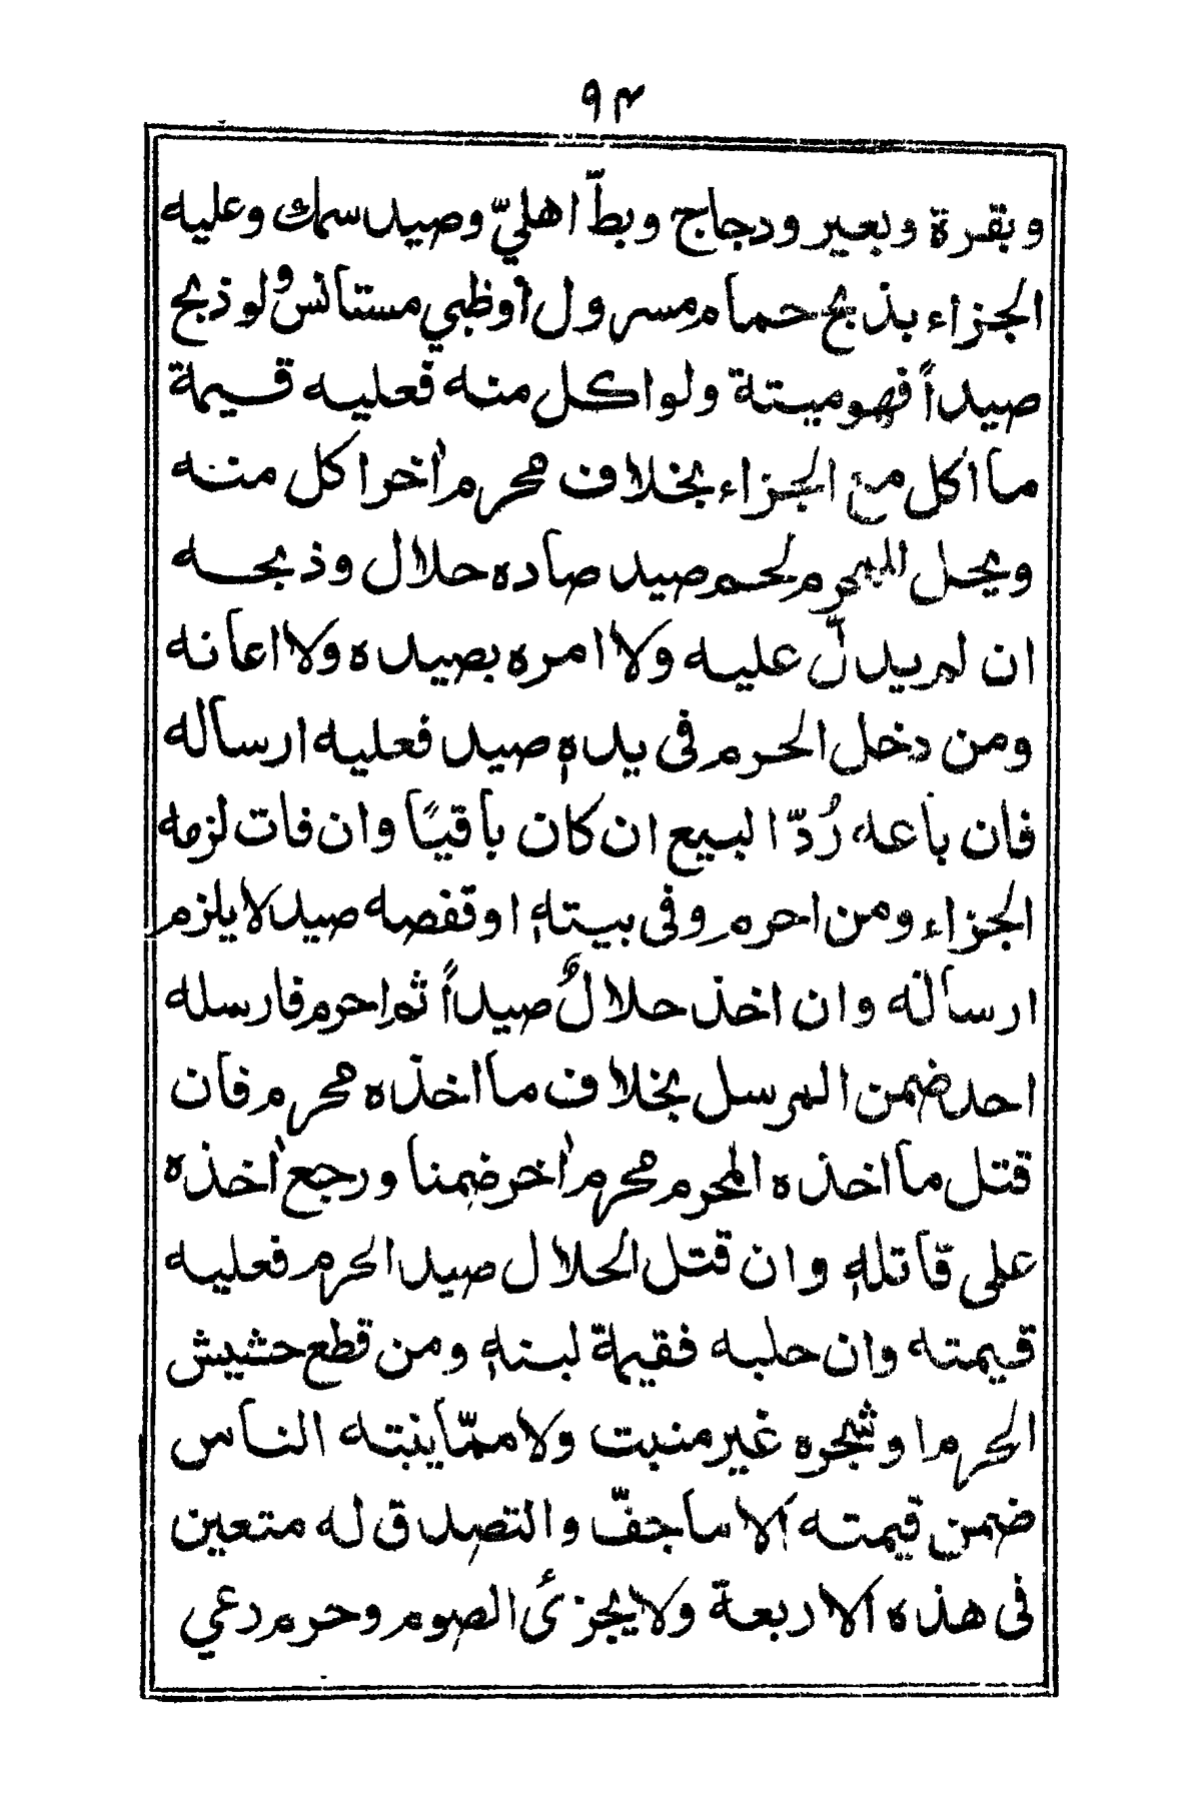 ٩٣
وبقرة وبعير ودجاج وبطّ اهليّ وصيد سمك وعليه
الجزاء بذبح حمام مسرول أوظبي مستانس ولو ذبح
صيداً فهوميتة ولو اكل منه فعليه قيمة
ما اكل مع الجزاء بخلاف محرم اٰخر اكل منه
ويحل للمحرم لحم صيد صاده حلال وذبحه
ان لم يدلّ عليه ولا امره بصيده ولا اعانه
ومن دخل الحرم فى يدهٖ صيد فعليه ارساله
فان باعه رُدّ البيع ان كان باقيًا وان فات لزمه
الجزاء ومن احرم وفى بيتهٖ او قفصه صيد لا يلزم
ارساله وان اخذ حلالٌ صيداً ثم احرم فارسله
احد ضمن المرسل بخلاف ما اخذه محرم فان
قتل ما اخذه المحرم محرم اٰخر ضمنا ورجع اٰخذه
على قاتلهٖ وان قتل الحلال صيد الحرم فعليه
قيمته وان حلبه فقيمة لبنهٖ ومن قطع حشيش
الحرم او شجره غير منبت ولا ممّا ينبته الناس
ضمن قيمته الا ما جفّ والتصدق له متعين
فى هذه الاربعة ولا يجزئ الصوم وحرم رعي